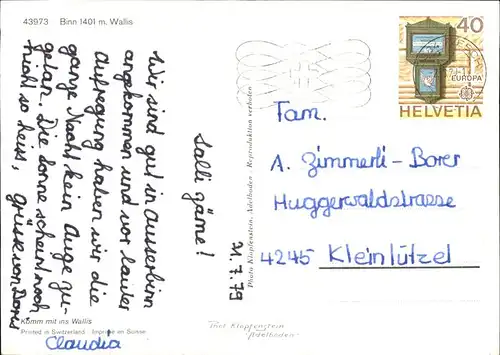 43973 Binn 1401 m. Wallis
salli zäme!
21.7.79
Wir sind gut in Ausserbinn
angekommen und vor lauter
Aufregung haben wir die
ganze Nacht kein Auge zu-
getan. Die Sonne scheint noch
nicht so heiss, grüsse von Doris
Claudia
Komm mit ins Wallis
Printed in Switzerland Imprimé en Suisse
Photo Klopfenstein, Adelboden - Reproduktion verboten
40
EUROPA
HELVETIA
Fam.
A. Zimmerli-Borer
Huggerwaldstrasse
4245 Kleinlützel
Phot Klopfenstein
"Adelboden"